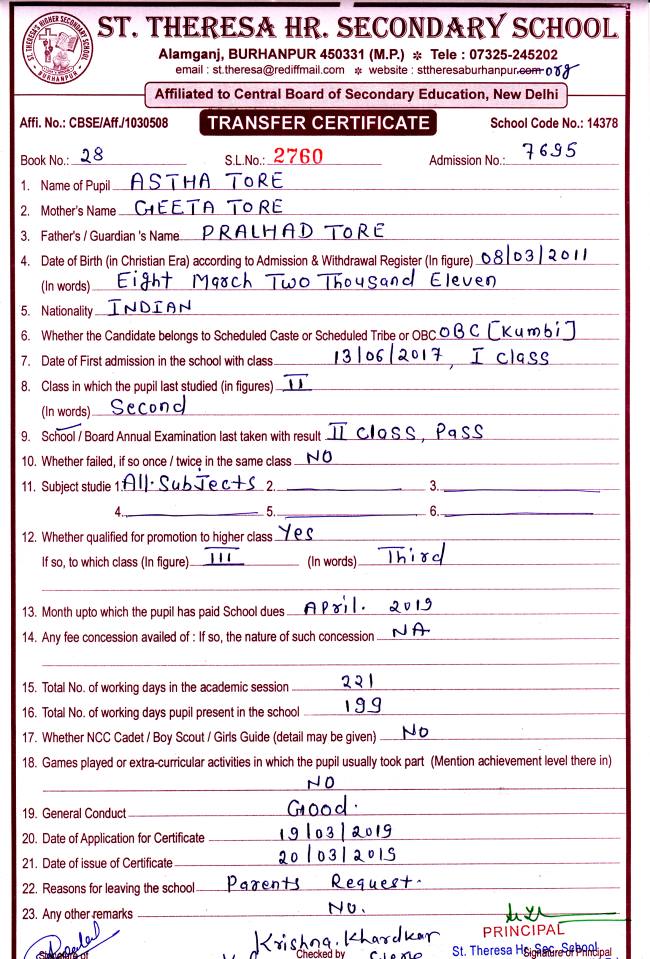 ST. THERESA'S HIGHER SECONDARY SCHOOL
BURHANPUR
ST. THERESA HR. SECONDARY SCHOOL
Alamganj, BURHANPUR 450331 (M.P.) * Tele : 07325-245202
email : st.theresa@rediffmail.com * website : sttheresaburhanpur.com org
Affiliated to Central Board of Secondary Education, New Delhi
Affi. No.: CBSE/Aff./1030508 TRANSFER CERTIFICATE School Code No.: 14378
Book No.: 28 S.L.No.: 2760 Admission No.: 7695
1. Name of Pupil ASTHA TORE
2. Mother's Name GEETA TORE
3. Father's / Guardian 's Name PRALHAD TORE
4. Date of Birth (in Christian Era) according to Admission & Withdrawal Register (In figure) 08/03/2011
(In words) Eight March Two Thousand Eleven
5. Nationality INDIAN
6. Whether the Candidate belongs to Scheduled Caste or Scheduled Tribe or OBC OBC [Kumbi]
7. Date of First admission in the school with class 13/06/2017, I class
8. Class in which the pupil last studied (in figures) II
(In words) Second
9. School / Board Annual Examination last taken with result II class, Pass
10. Whether failed, if so once / twice in the same class NO
11. Subject studie 1. All. Subjects 2. 3.
4. 5. 6.
12. Whether qualified for promotion to higher class Yes
If so, to which class (In figure) III (In words) Third
13. Month upto which the pupil has paid School dues April. 2019
14. Any fee concession availed of : If so, the nature of such concession NA
15. Total No. of working days in the academic session 221
16. Total No. of working days pupil present in the school 199
17. Whether NCC Cadet / Boy Scout / Girls Guide (detail may be given) No
18. Games played or extra-curricular activities in which the pupil usually took part (Mention achievement level there in)
NO
19. General Conduct Good.
20. Date of Application for Certificate 19/03/2019
21. Date of issue of Certificate 20/03/2019
22. Reasons for leaving the school Parents Request.
23. Any other remarks No.
PRINCIPAL
Krishna. Khardkar
St. Theresa Hr. Sec. School
Signature of Checked by Signature of Principal